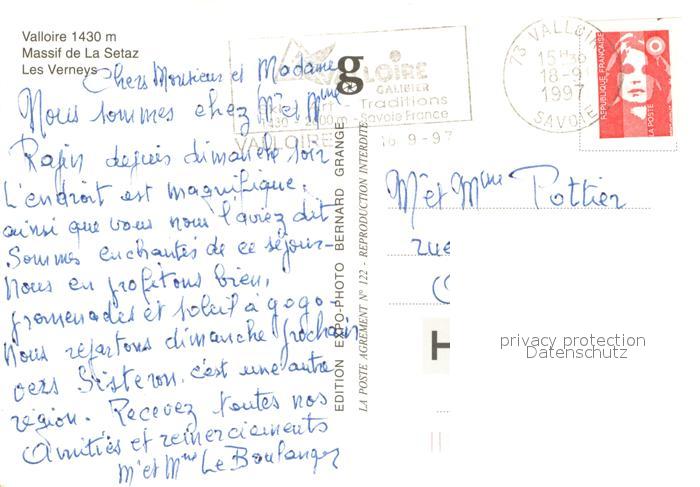 Valloire 1430 m
Massif de La Setaz
Les Verneys
Chers Monsieur et Madame
Nous sommes chez Mr et Mme
Rafin depuis dimanche soir
L'endroit est magnifique,
ainsi que vous nous l'aviez dit
Sommes enchantés de ce séjour-
Nous en profitons bien,
promenades et soleil à gogo-
Nous repartons dimanche prochain
vers Sisteron, c'est une autre
région. Recevez toutes nos
Amitiés et remerciements
Mr et Mme Le Boulanger
g
EDITION EXPO-PHOTO BERNARD GRANGE
LA POSTE AGREMENT N° 122 - REPRODUCTION INTERDITE
VALLOIRE
GALIBIER
Traditions
Savoie France
VALLOIRE
16 9-97
73 VALLOIRE
15H30
18-9
1997
SAVOIE
REPUBLIQUE FRANÇAISE
LA POSTE
Mr et Mme Pottier
rue
(
H
privacy protection
Datenschutz